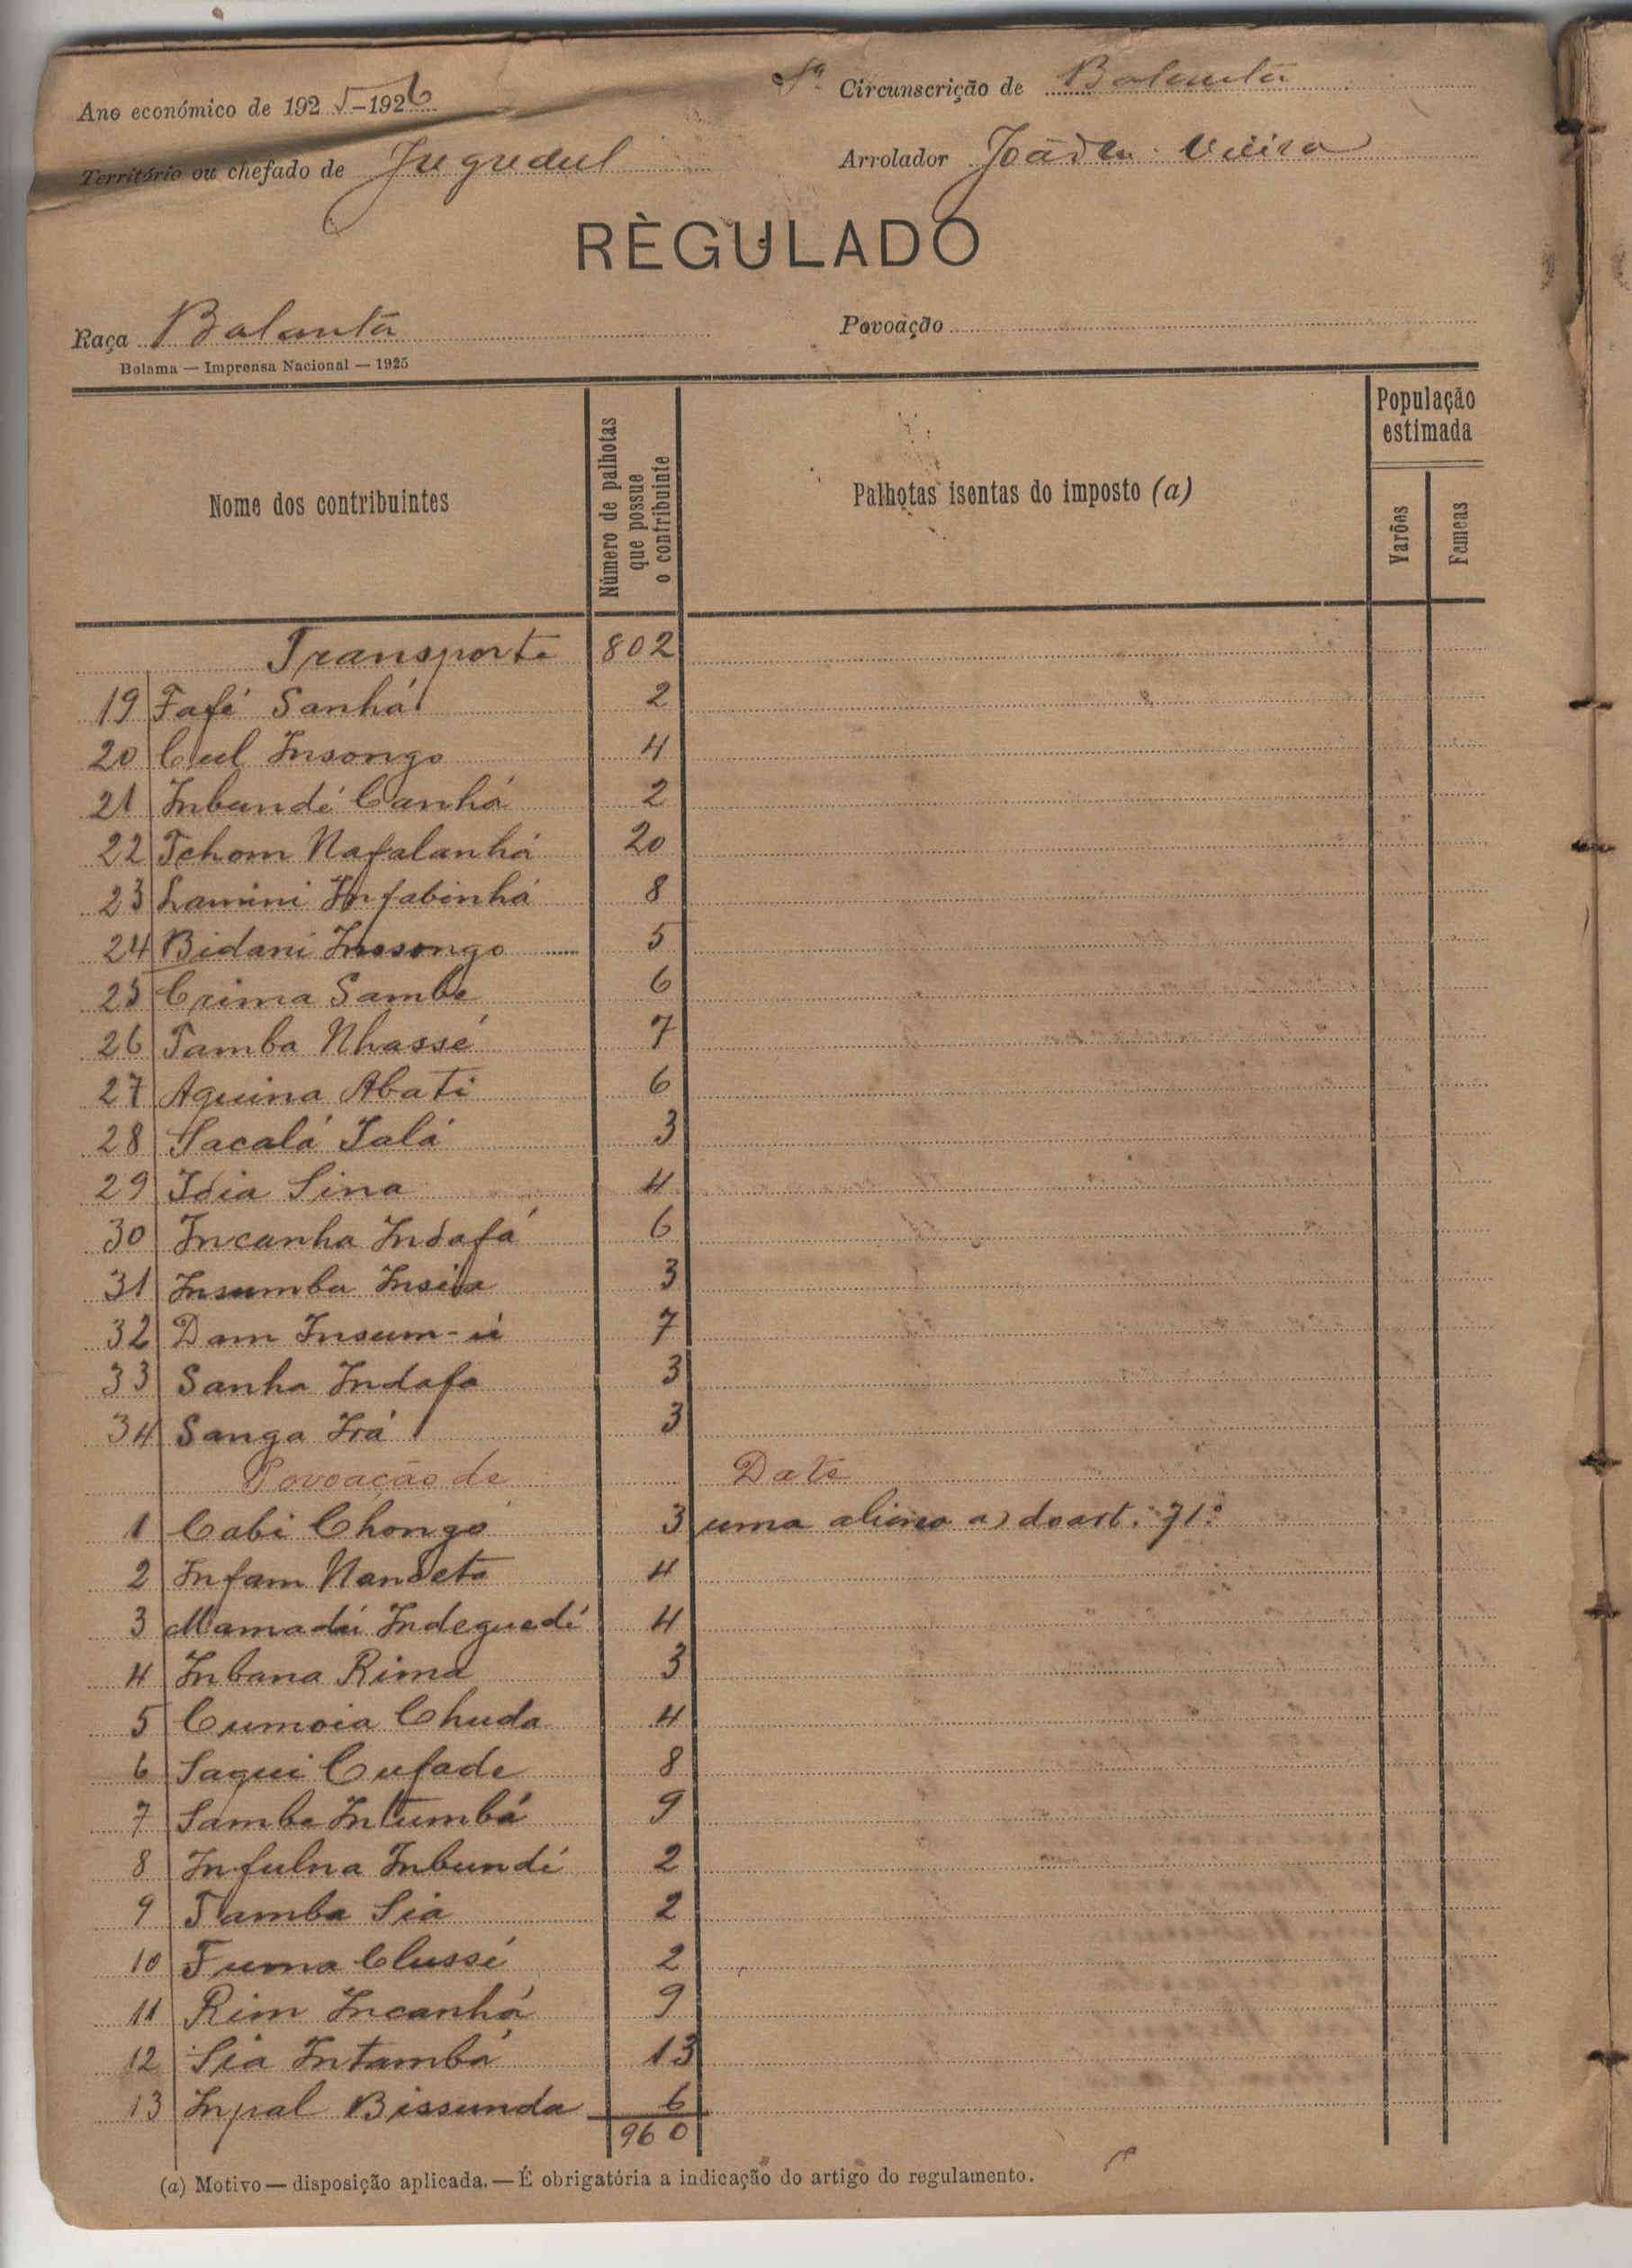 Ano económico de 1925-1926
Circunscrição de Balanta
Território ou chefado de Jugudul
Arrolador João Vieira
RÈGULADO
Raça Balanta
Povoação
Bolama — Imprensa Nacional — 1925
Nome dos contribuintes
Número de palhotas que possue o contribuinte
Palhotas isentas do imposto (a)
População estimada
Varões
Fameas
Transporte 802
19 Fafé Sanhá 2
20 Cul Insongo 4
21 Inbundé Canhá 2
22 Tchom Nafalanhá 20
23 Lamini Infabinhá 8
24 Bidani Insongo 5
25 Crima Sambe 6
26 Tamba Nhassé 7
27 Aquina Abati 6
28 Sacalá Talá 3
29 Idia Sina 4
30 Incanha Indafá 6
31 Insumba Insila 3
32 Dam Insum-ú 7
33 Sanha Indafa 3
34 Sanga Irá 3
Povoação de Date
1 Cabi Chongo 3 uma alinea a) do art. 71.º
2 Infam Nandeta 4
3 Mamadú Indeguedé 4
4 Inbana Rima 3
5 Cumoia Chuda 4
6 Sagui Cufade 8
7 Sambe Intumbá 9
8 Infulna Inbundé 2
9 Tamba Sia 2
10 Fuma Clussé 2
11 Rim Incanhá 9
12 Sia Intambá 13
13 Inpal Bissunda 6
960
(a) Motivo — disposição aplicada. — É obrigatória a indicação do artigo do regulamento.